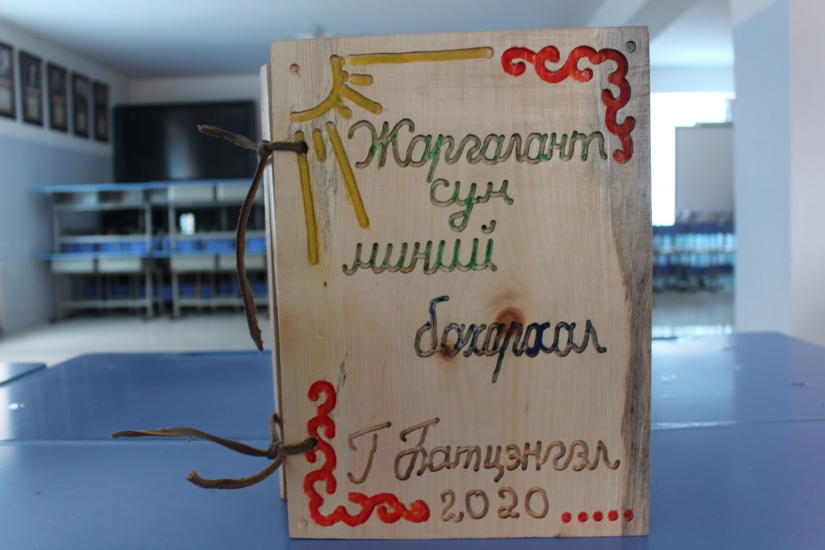 Жаргалант
сум
миний
бахархал
Г Батцэнгэл
2020